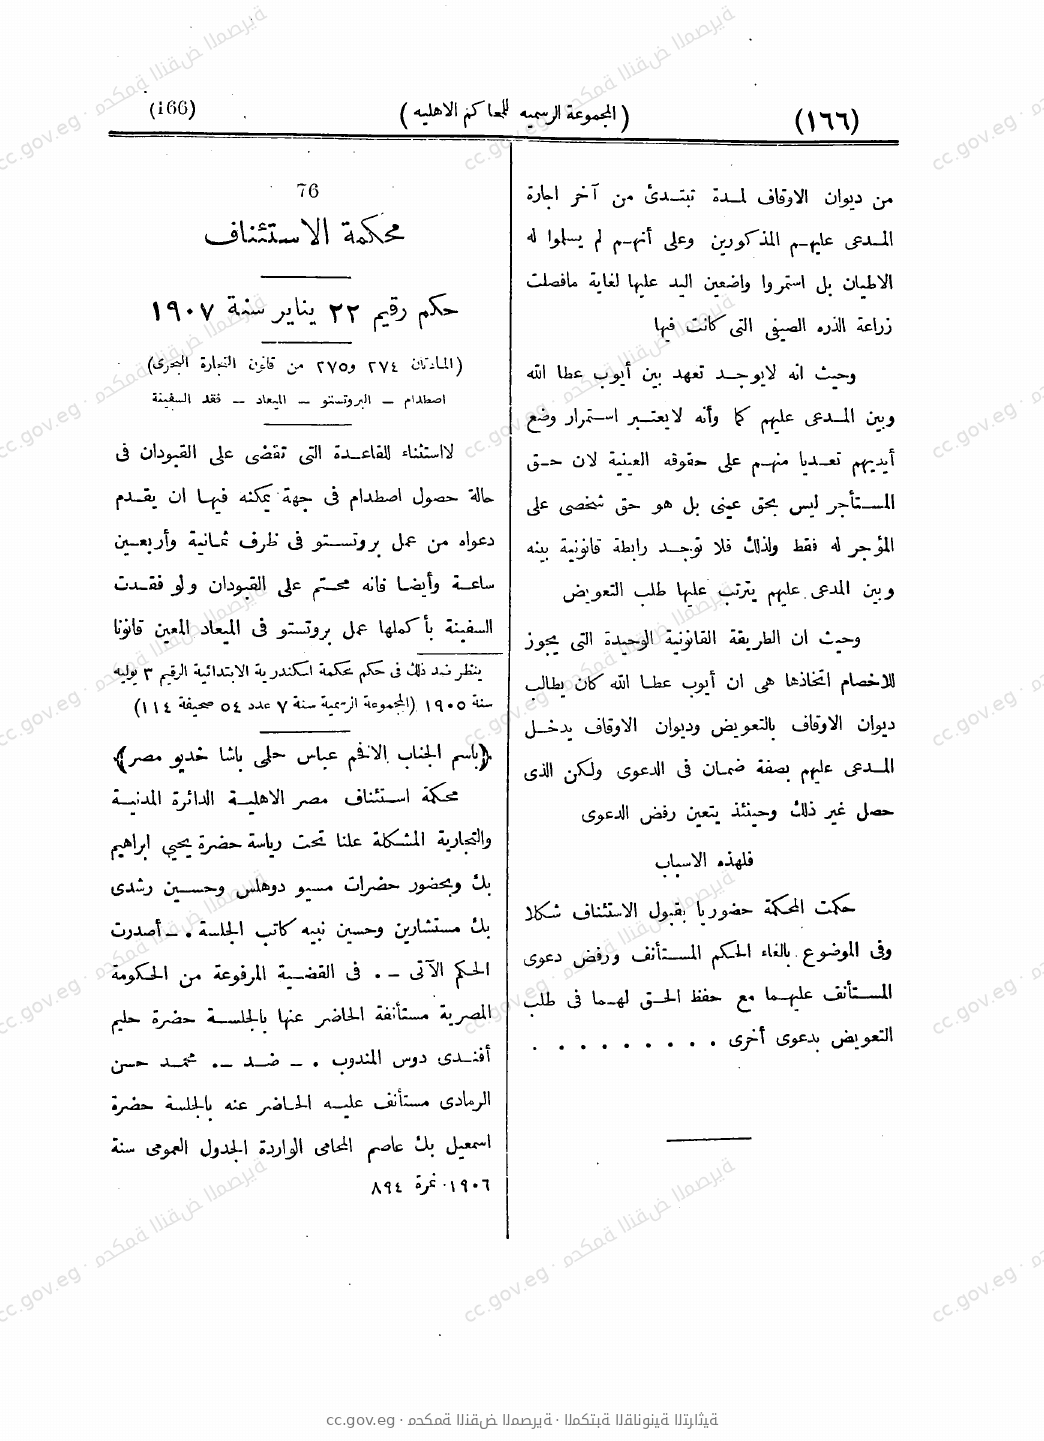 (١٦٦)
(المجموعة الرسميه للمحاكم الاهليه)
(166)
من ديوان الاوقاف لمدة تبتدئ من آخر اجارة
المدعى عليهم المذكورين وعلى أنهم لم يسلموا له
الاطيان بل استمروا واضعين اليد عليها لغاية مافصلت
زراعة الذره الصيفى التى كانت فيها
وحيث انه لايوجد تعهد بين أيوب عطا الله
وبين المدعى عليهم كما وأنه لايعتبر استمرار وضع
أيديهم تعديا منهم على حقوقه العينية لان حق
المستأجر ليس بحق عينى بل هو حق شخصى على
المؤجر له فقط ولذلك فلا توجد رابطة قانونية بينه
وبين المدعى عليهم يترتب عليها طلب التعويض
وحيث ان الطريقة القانونية الوحيدة التى يجوز
للاخصام اتخاذها هى ان أيوب عطا الله كان يطالب
ديوان الاوقاف بالتعويض وديوان الاوقاف يدخل
المدعى عليهم بصفة ضمان فى الدعوى ولكن الذى
حصل غير ذلك وحينئذ يتعين رفض الدعوى
فلهذه الاسباب
حكمت المحكمة حضوريا بقبول الاستئناف شكلا
وفى الموضوع بالغاء الحكم المستأنف ورفض دعوى
المستأنف عليهما مع حفظ الحق لهما فى طلب
التعويض بدعوى أخرى . . . . . . . . .
76
محكمة الاستئناف
حكم رقيم ٢٢ يناير سنة ١٩٠٧
(المادتان ٢٧٤ و٢٧٥ من قانون التجارة البحرى)
اصطدام – البروتستو – الميعاد – فقد السفينة
لااستثناء للقاعدة التى تقضى على القبودان فى
حالة حصول اصطدام فى جهة يمكنه فيها ان يقدم
دعواه من عمل بروتستو فى ظرف ثمانية وأربعين
ساعة وأيضا فانه محتم على القبودان ولو فقدت
السفينة بأكملها عمل بروتستو فى الميعاد المعين قانونا
ينظر ضد ذلك فى حكم محكمة اسكندرية الابتدائية الرقيم ٣ يوليه
سنة ١٩٠٥ (المجموعة الرسمية سنة ٧ عدد ٥٤ صحيفة ١١٤)
﴿باسم الجناب الافخم عباس حلمى باشا خديو مصر﴾
محكمة استئناف مصر الاهلية الدائرة المدنية
والتجارية المشكلة علنا تحت رياسة حضرة يحيى ابراهيم
بك وبحضور حضرات مسيو دوهلس وحسين رشدى
بك مستشارين وحسين نبيه كاتب الجلسة . – أصدرت
الحكم الآتى – . فى القضية المرفوعة من الحكومة
المصرية مستأنفة الحاضر عنها بالجلسة حضرة حليم
أفندى دوس المندوب . – ضد – . محمد حسن
الرمادى مستأنف عليه الحاضر عنه بالجلسة حضرة
اسمعيل بك عاصم المحامى الواردة الجدول العمومى سنة
١٩٠٦ نمرة ٨٩٤
cc.gov.eg · محكمة النقض المصرية · المكتبة القانونية التراثية